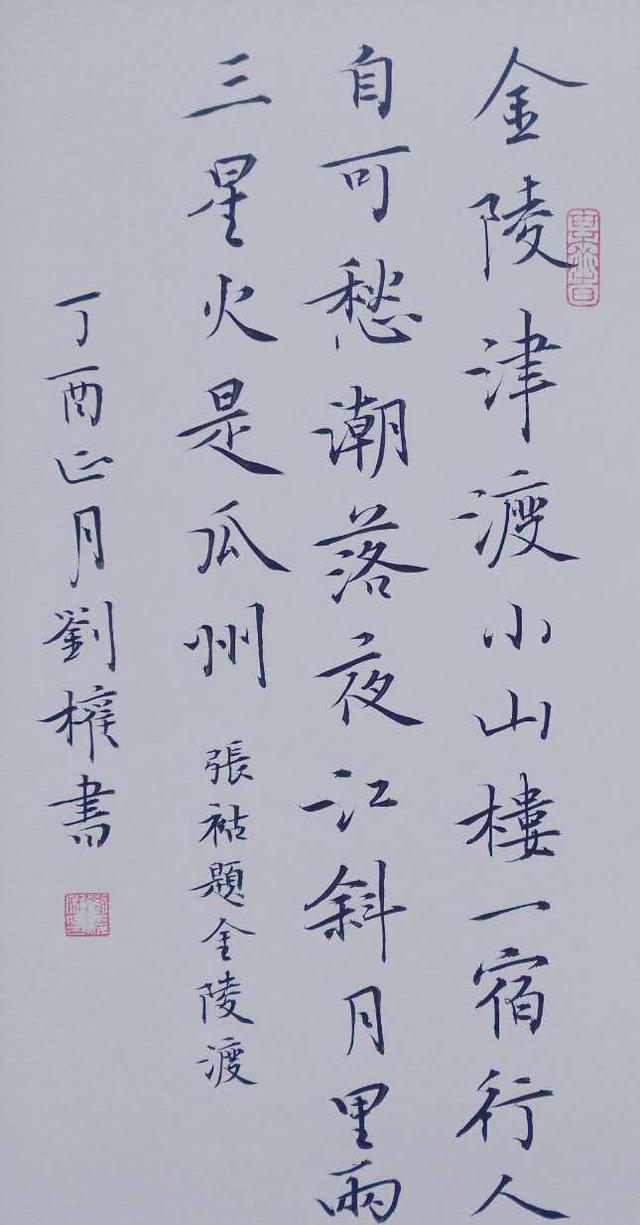 金陵津渡小山樓一宿行人
自可愁潮落夜江斜月里兩
三星火是瓜州
張祜題金陵渡
丁酉正月劉權書